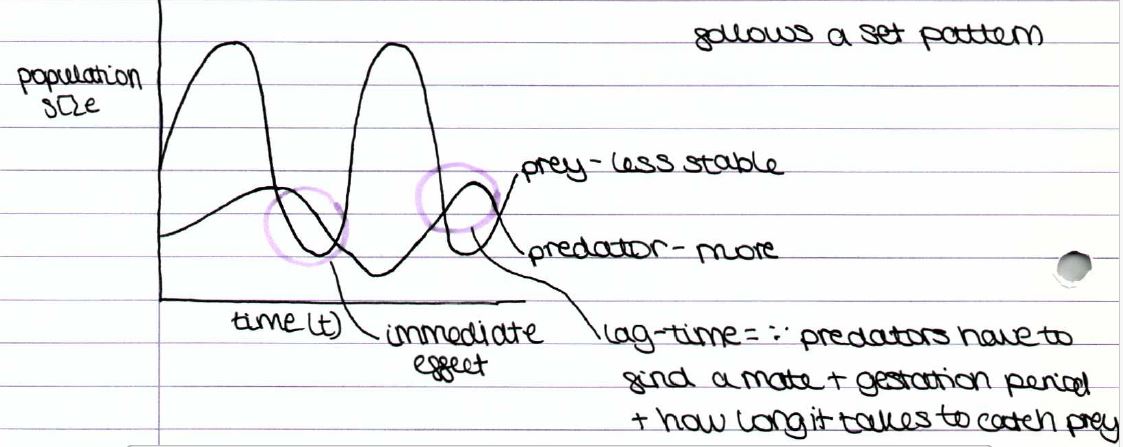 follows a set pattern
population
size
prey - less stable
predator - more
time (t)
immediate
effect
lag-time = ∵ predators have to
find a mate + gestation period
+ how long it takes to catch prey